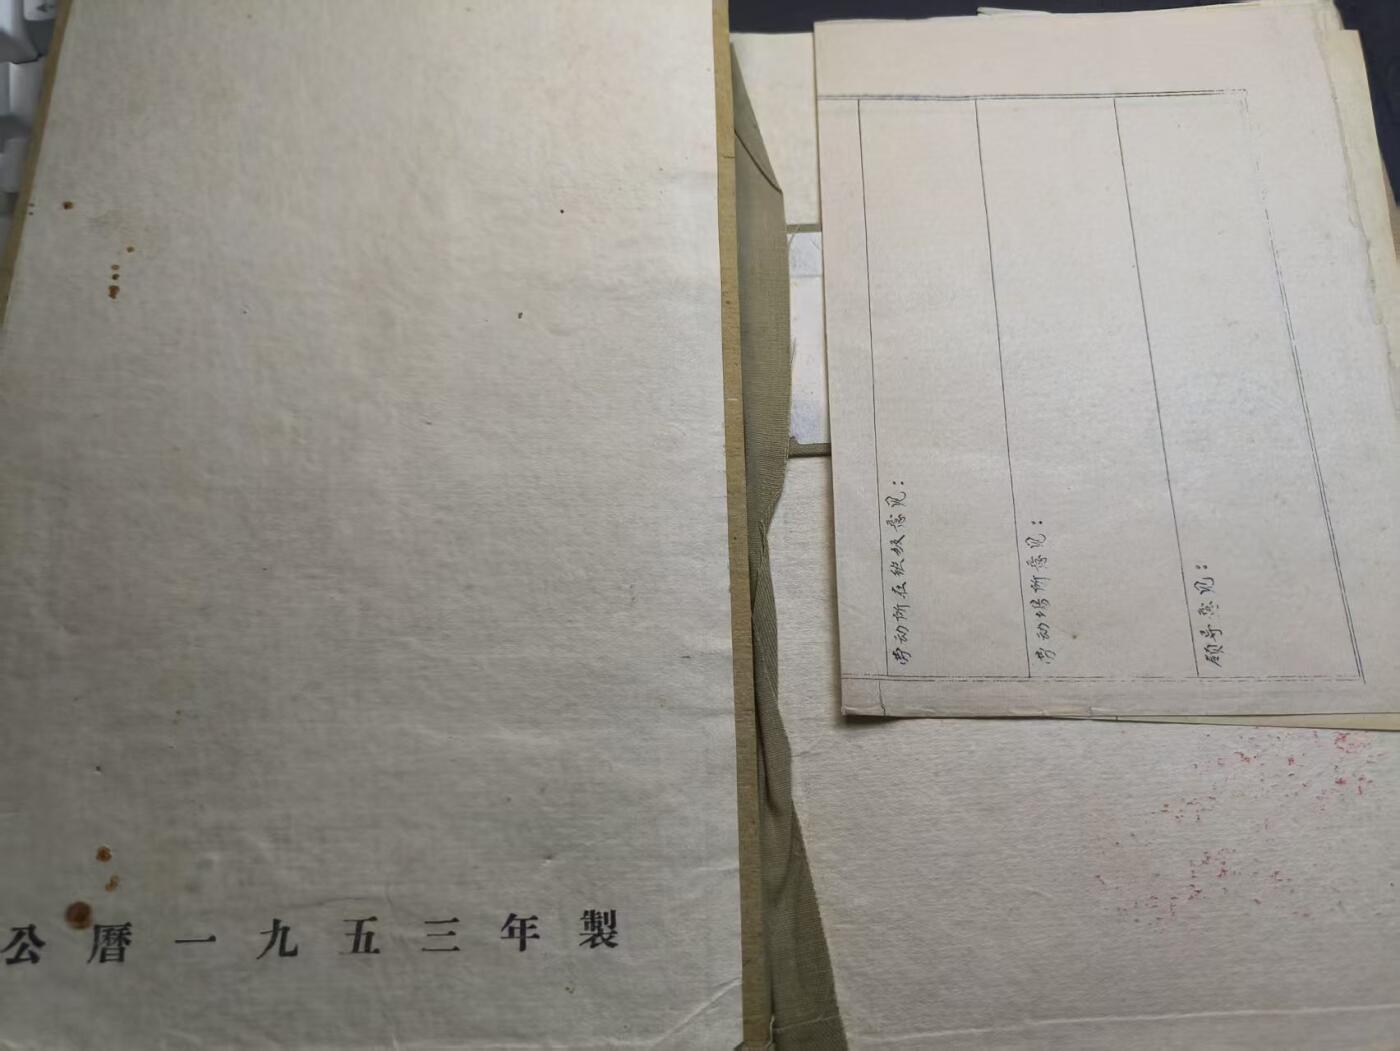 公曆一九五三年製
劳动所在班级意见：
劳动场所意见：
领导意见：